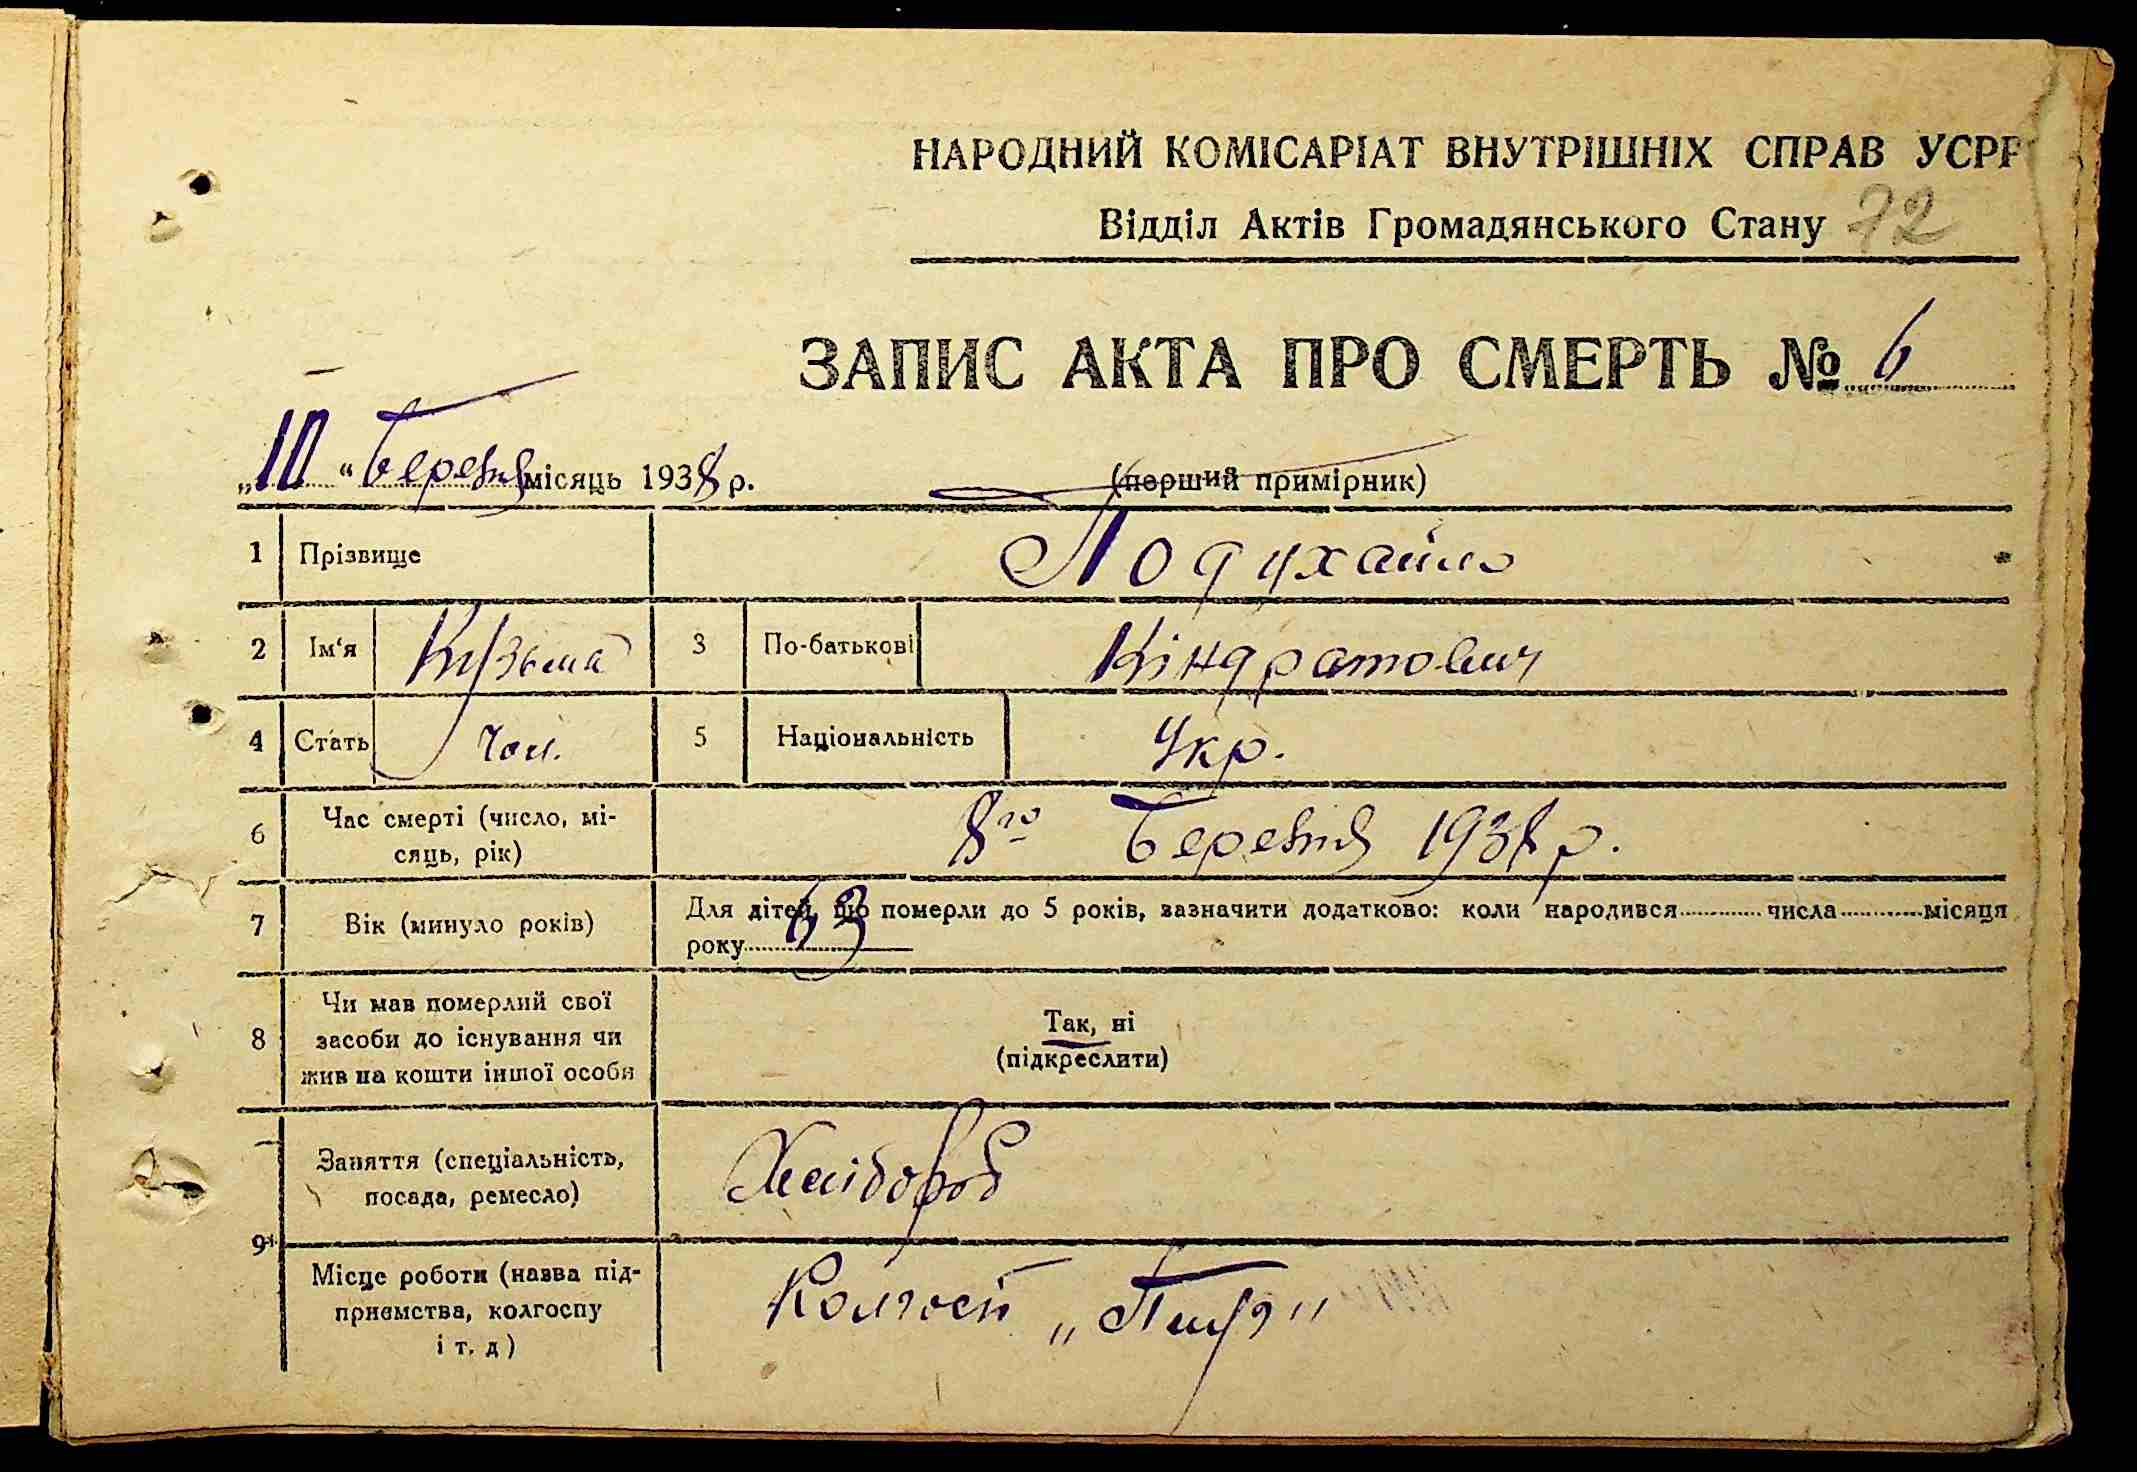 НАРОДНИЙ КОМІСАРІАТ ВНУТРІШНІХ СПРАВ УСРР
Відділ Актів Громадянського Стану 72
ЗАПИС АКТА ПРО СМЕРТЬ № 6
„10“ Березня місяць 1938 р. (перший примірник)
1 Прізвище Подухайло
2 Ім'я Кузьма 3 По-батькові Кіндратович
4 Стать Чол. 5 Національність Укр.
6 Час смерті (число, мі-
сяць, рік) 8го Березня 1938 р.
7 Вік (минуло років) 63 Для дітей, що померли до 5 років, зазначити додатково: коли народився числа місяця
року
8 Чи мав померлий свої
засоби до існування чи
жив на кошти іншої особи
Так, ні
(підкреслити)
9 Заняття (спеціальність,
посада, ремесло) Хлібороб
Місце роботи (назва під-
приємства, колгоспу
і т. д)
Колгосп